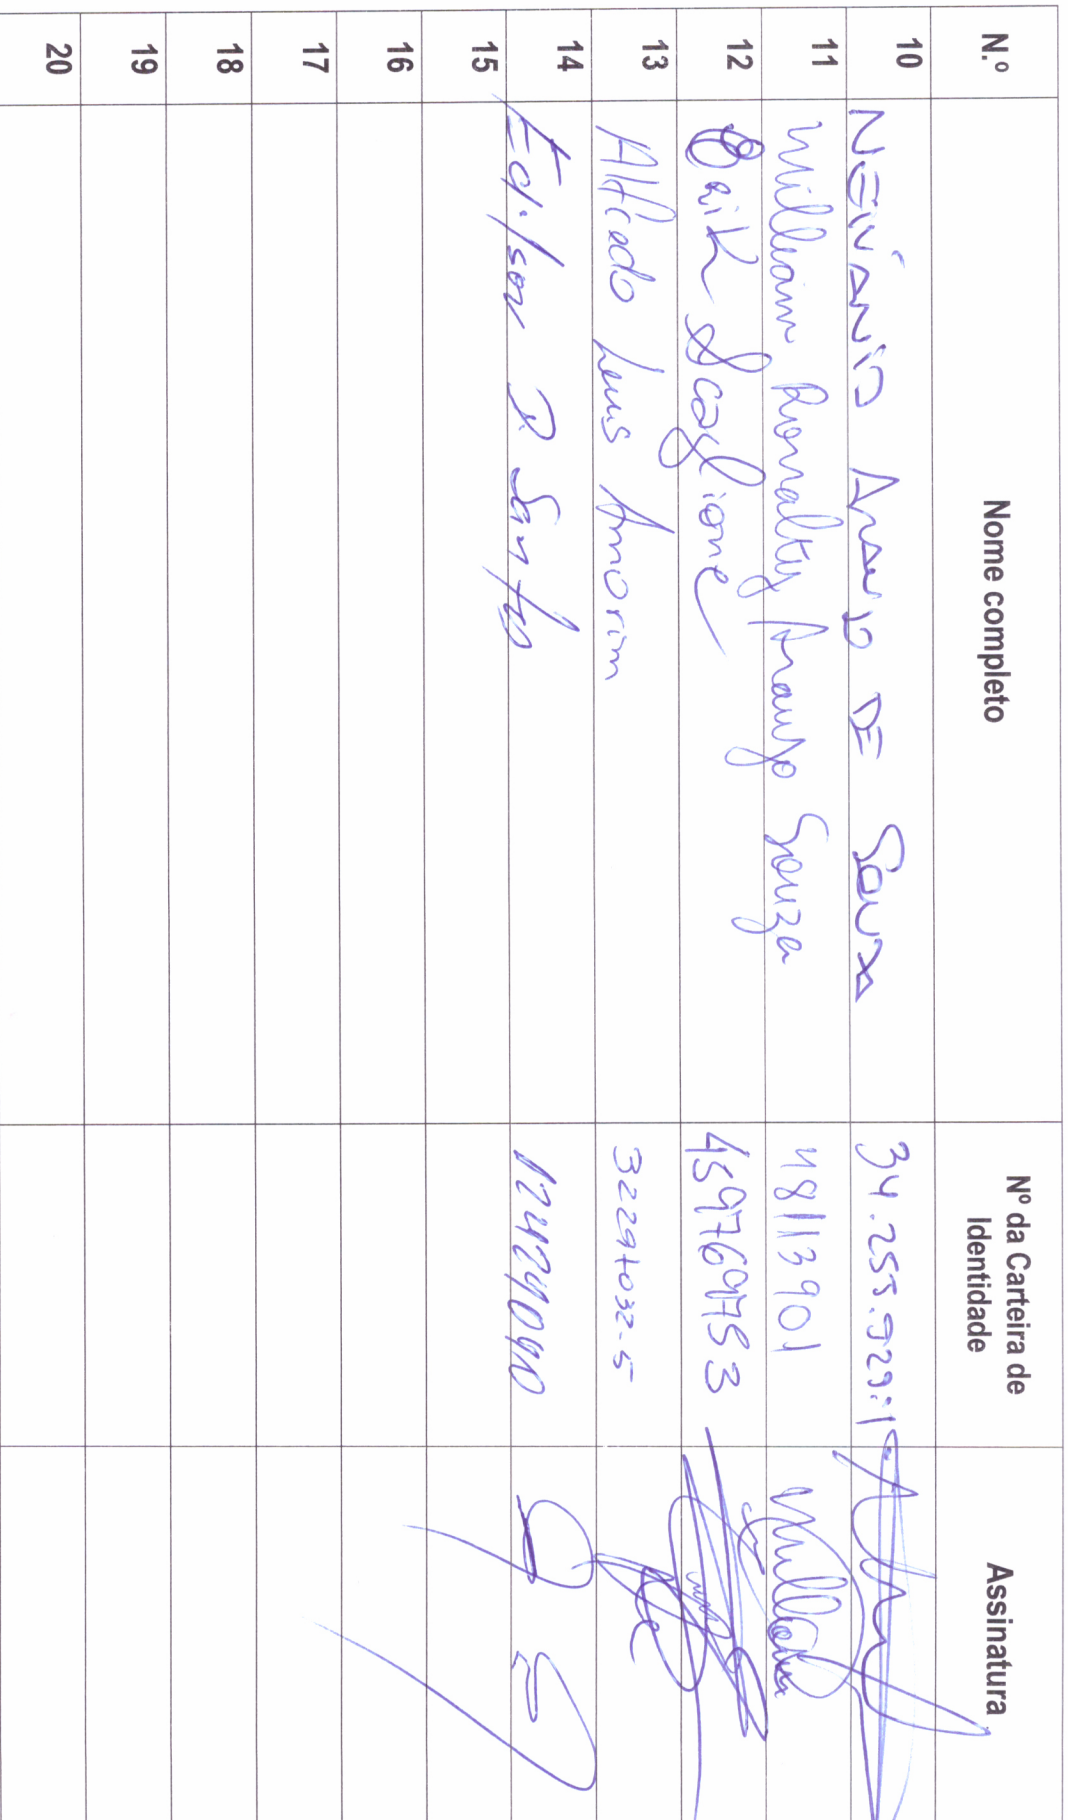 N.º Nome completo Nº da Carteira de Identidade Assinatura
10 NEIVÂNIO ARAUJO DE SOUZA 34.255.929-1
11 Willian Ronalty Araujo Souza 48113901
12 Erik Scaglione 459769753
13 Alfredo Luis Amorim 32297032-5
14 Edilson D Santos
15
16
17
18
19
20